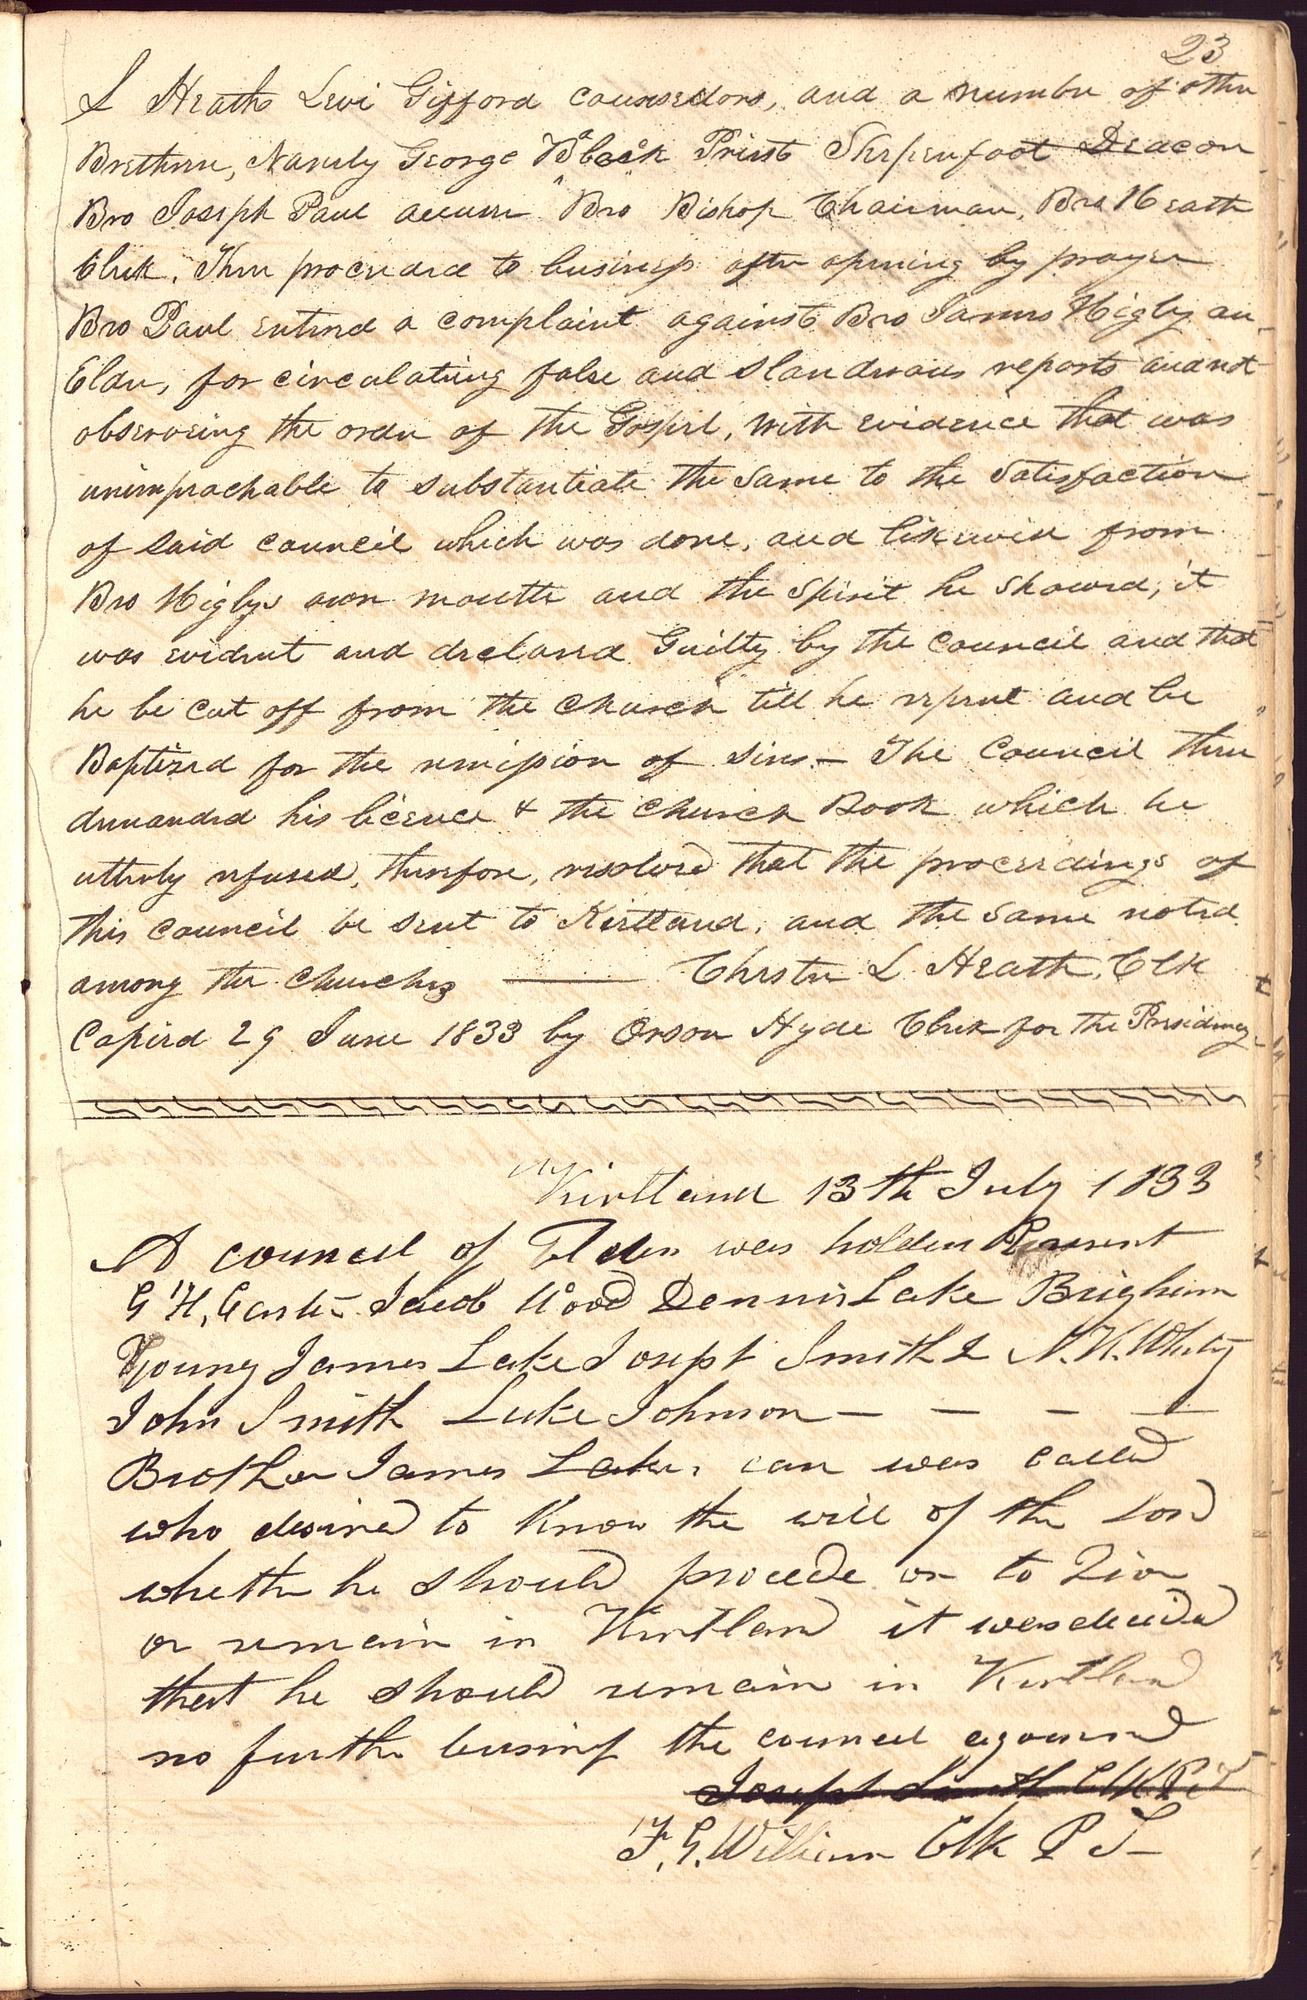 23
L Heath Levi Gifford councelors, and a number of other
Brethren, Namely George Black Priest Sherpenfoot Deacon
Bro Joseph Paul accuser Bro Bishop Chairman, Bro Heath
Clerk. Then proceeded to business after opening by prayer
Bro Paul entered a complaint against Bro James Higby an
Elder, for circulating false and slanderous reports and not
observeing the order of the Gospel, with evidence that was
unimpeachable to substantiate the same to the satisfaction
of said council which was done, and likewise from
Bro Higbys own mouth and the spirit he showed, it
was evident and declared Guilty by the council and that
he be cut off from the church till he repent and be
Baptized for the remission of sins— The Council then
demanded his licence & the church Book which he
utterly refused, therefore, resolved that the proceedings of
this council be sent to Kirtland, and the same noted
among the churches —— Chester L Heath, Clk
Copied 29 June 1833 by Orson Hyde Clerk for the Presidency
Kirtland 13th July 1833
A council of Elders was holden Present
G H, Carter Jacob Wood Dennis Lake Brigham
Young James Lake Joseph Smith J N. K. Whitny
John Smith Luke Johnson — — — —
Brother James Lake, can was called
who desired to know the will of the Lord
whether he should procede on to Zion
or remain in Kirtland it was decided
that he should remain in Kirtland
no further business the council ajourned
Joseph Smith Clk P T
F, G. William Clk P T—